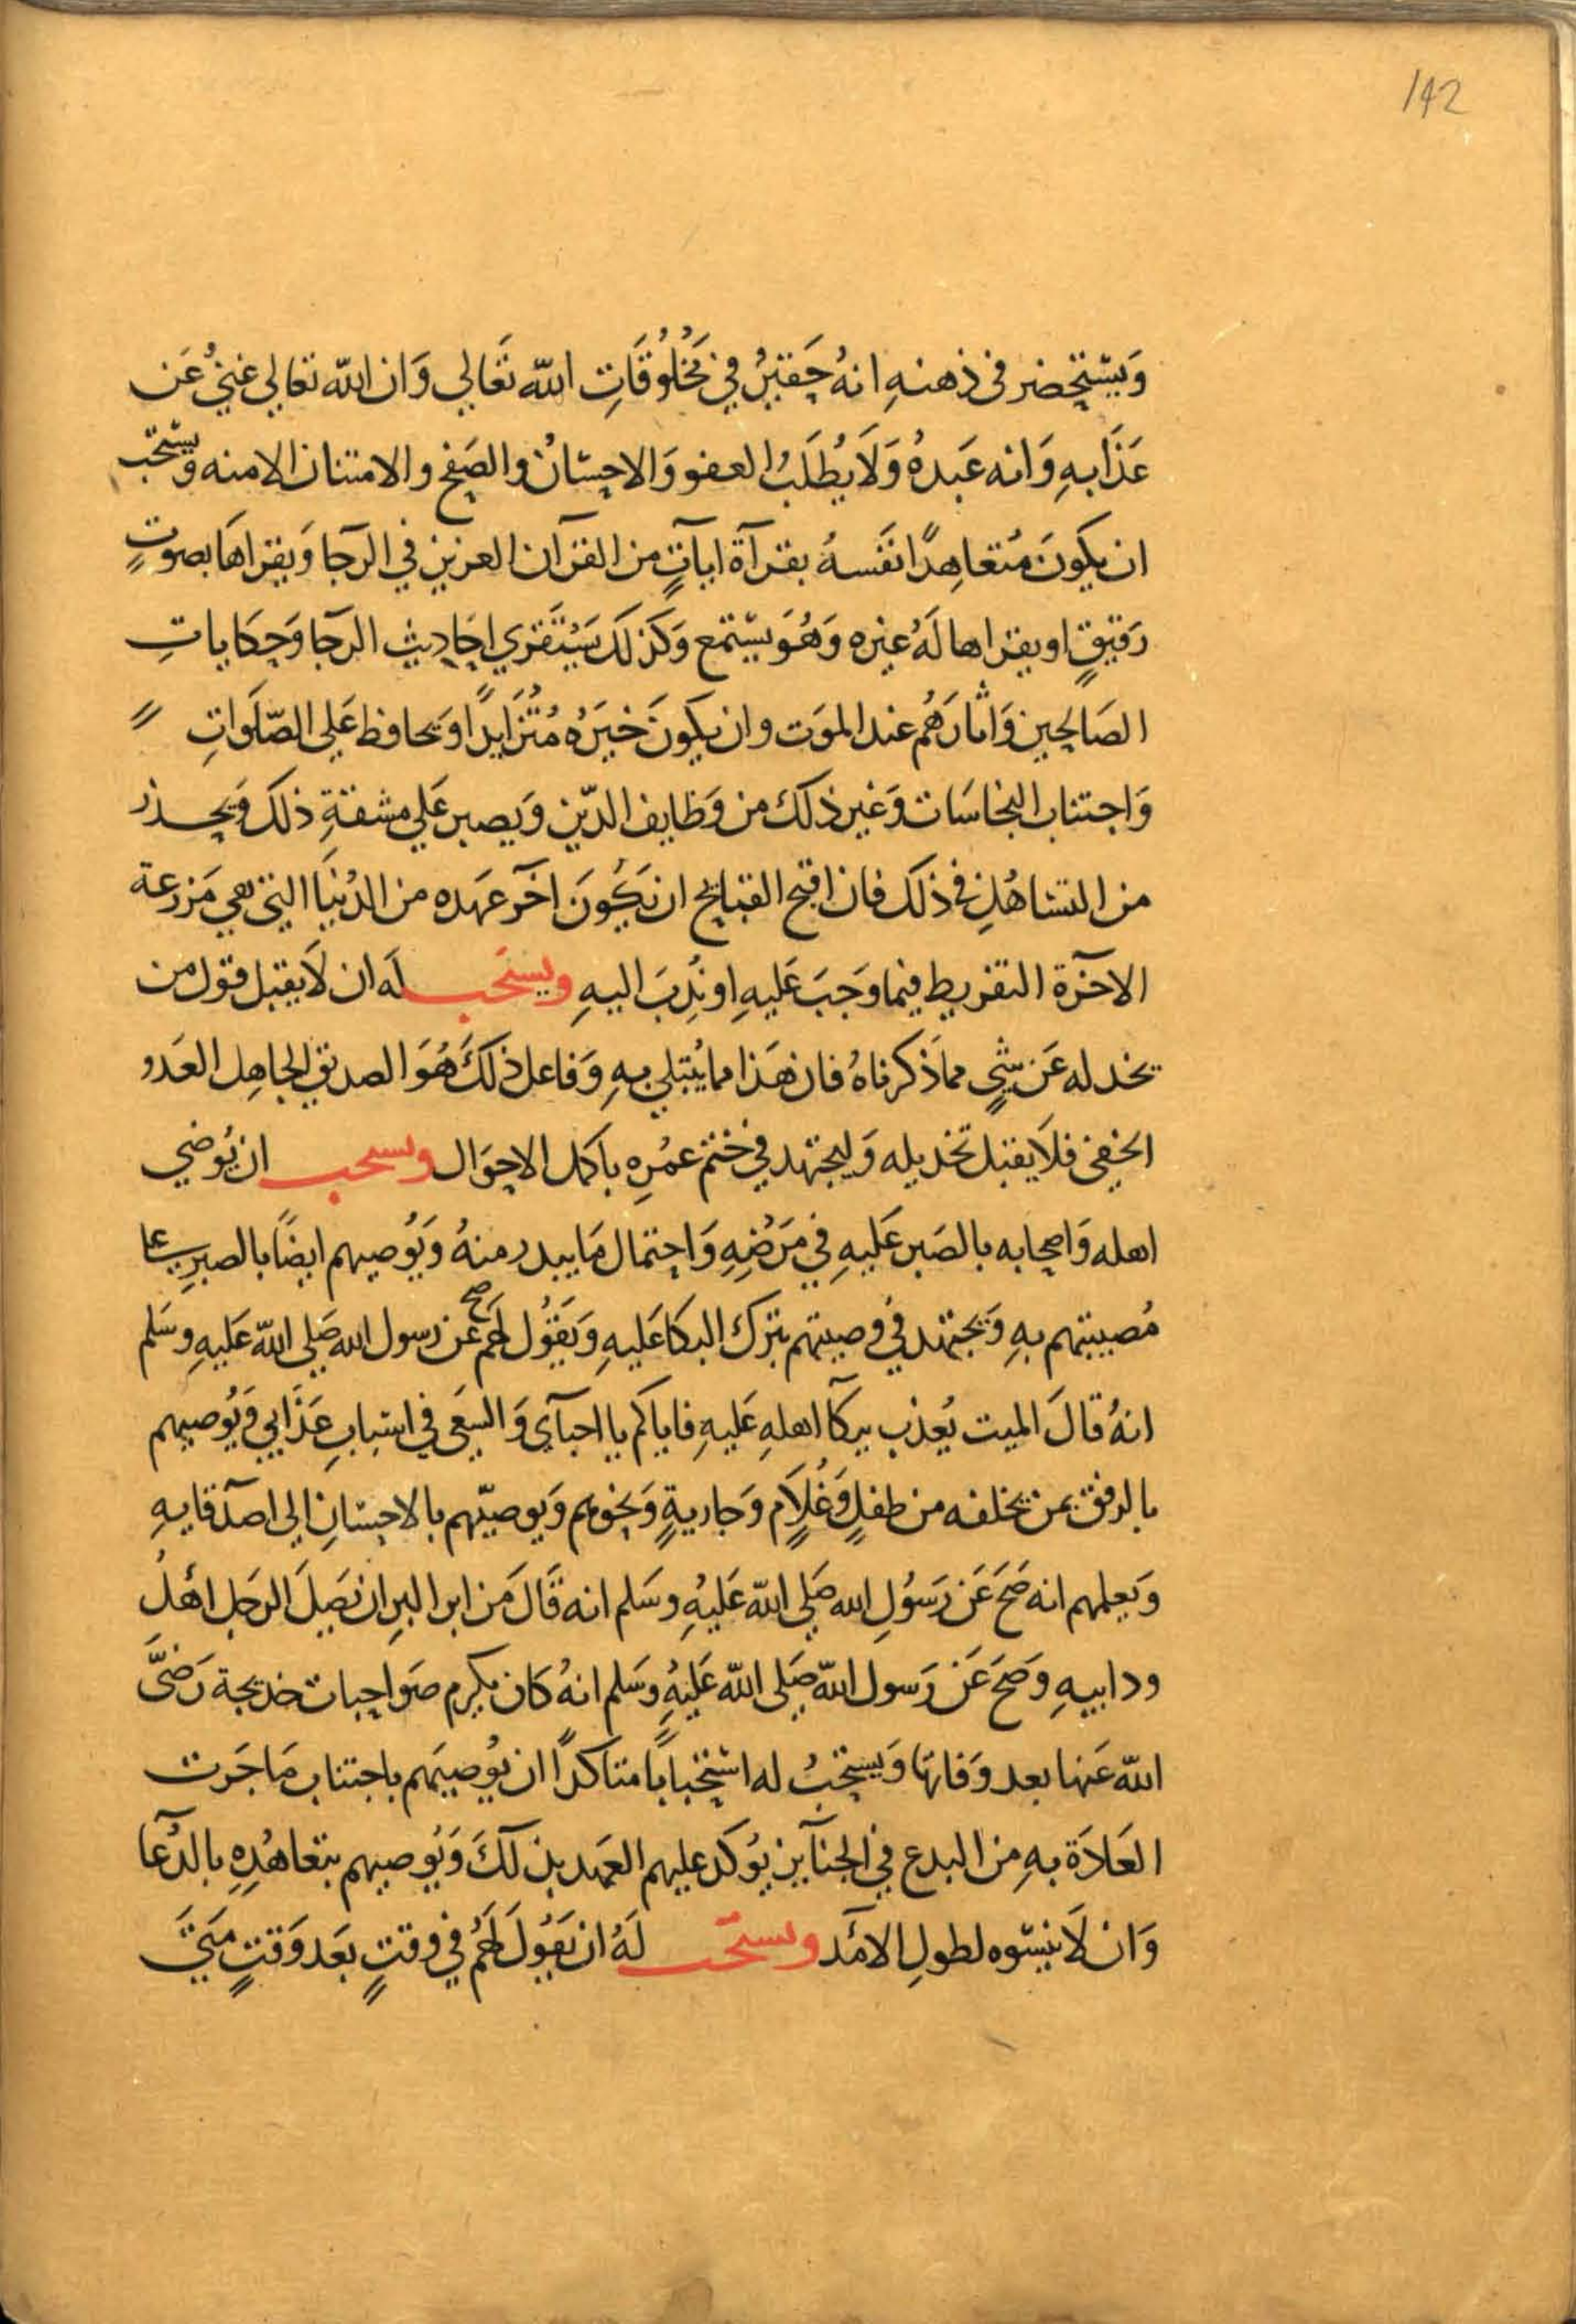 142
وَيَسْتَحضر في ذهنهِ انهُ حَقيرٌ في مَخْلُوقَاتِ اللّه تَعَالي وَان اللّه تعالي غنيٌّ عَن
عَذَابهِ وَانه عَبدهُ وَلَا يُطلَبُ العفو وَالاحسَانُ والصَفح والامتنان الامنه ويستحَب
ان يكونَ مُتعاهِدًا نَفسهُ بقرآة اياتٍ من القرآن العزيز في الرجا وَيقراهَا بصوتٍ
رَقيقٍ او يقراها لَهُ غيره وَهُوَ يسْتمع وَكذلكَ يَسْتَقري احَاديث الرجا وَحِكاياتِ
الصَالحين وَاثارَهُم عند الموَت وان يكونَ خيَرُه مُتَزايدًا وَيحافظ عَلي الصّلَوَاتِ
وَاجتناب النجاسَات وَغير ذلك من وَظايف الدّين وَيصبر عَلي مشقةِ ذلكَ وَيحذر
من التساهُلِ في ذلكَ فان اقبح القبايح ان يَكُونَ اخَر عَهده من الدُنيَا التي هي مَزرعة
الاخرَة التفريط فيما وَجبَ عَليهِ او نُدِبَ اليهِ ويستَحب لهَ ان لَا يقبل قول من
يخدله عَن شَيءٍ مماَ ذكرناهُ فان هَذا مما يُبتلي بهِ وَفاعل ذلكَ هُوَ الصديق الجاهِل العَدو
الخفي فلَا يقبل تخديله وَليجتهد في ختم عمُرِه باكمل الاحوَال ويستحب ان يُوضي
اهله وَاصحابه بالصَبر عَليهِ في مَرَضِهِ وَاحتمال مَا يبدر منهُ وَيُوصيهم ايضًا بالصبرِ علي
مُصيبتهم بهِ وَيجتهد في وصيتهم بترك البكا عَليهِ وَيَقُول لهَم صح عَن رسول الله صَلي اللّه عَليهِ وسَلم
انهُ قالَ الميت يُعذب ببكآ اهلهِ عَليهِ فاياكم يا احبآي وَالسعَي في اسبَابِ عَذَابي وَيُوصيهم
بالرفق بمن يخلفه من طفلٍ وَغُلَامٍ وَجاريةٍ وَنحوهم وَيوصيّهم بالاحسَانِ الي اصدَقايهِ
وَيعلمهم انه صَحَ عَن رَسُولِ الله صَلي اللّه عَليهِ وسَلم انه قَالَ مَن ابر البرِ ان يَصلَ الرجَل اهْلُ
ود ابيهِ وَصَحَ عَن رَسول اللّه صَلي اللّه عَليهِ وسَلم انهُ كَان يكرم صَواحبات خديجة رَضيَّ
اللّه عَنها بعد وَفاتهَا وَيَستحبُ له استحبابًا متاكدًا ان يُوصيَهم باجتناب مَا جَرَت
العَادَة بهِ من البدع في الجنآيز يؤكد عليهم العَهد بذلكَ وَيُوصيهم بتعاهُدِهِ بالدُعآ
وَان لَا ينسَوه لطولِ الامَد ويستَحب لَهُ ان يَقُولَ لهَم في وقتٍ بَعد وَقتٍ مَتيَ